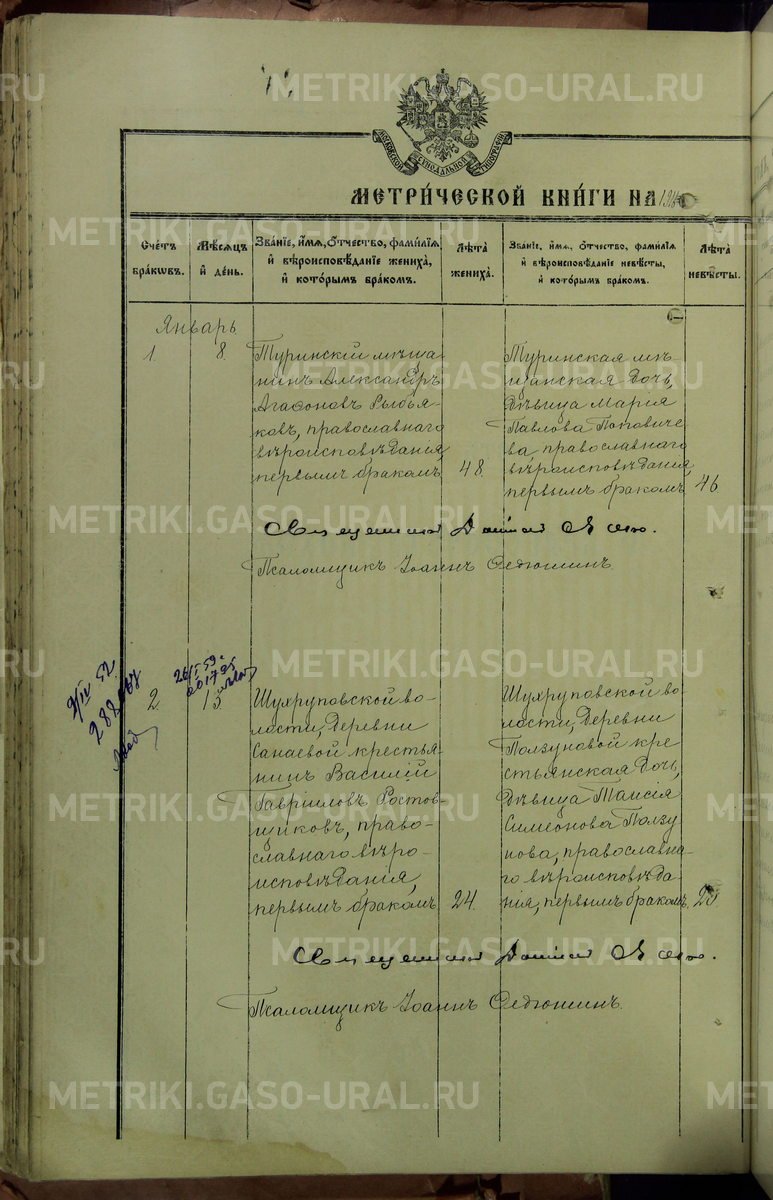 МОСКОВСКОЙ СѴНОДАЛЬНОЙ ТИПОГРАФІИ
МЕТРИ́ЧЕСКОЙ КНИ́ГИ НА
Сче́тъ бра́кѡвъ.
Мѣ́сѧцъ й де́нь.
Зва́нїе, и́мѧ, о́тчество, фами́лїѧ й вѣроисповѣ́данїе жениха̀, й кото́рымъ бра́комъ.
Лѣ́та жениха̀.
Зва́нїе, и́мѧ, о́тчество, фами́лїѧ й вѣроисповѣ́данїе невѣ́сты, й кото́рымъ бра́комъ.
Лѣ́та невѣ́сты.
Январь
1.
8.
Туринскій мѣща-
нинъ Александръ
Агафоновъ Рыбья-
ковъ, православнаго
вѣроисповѣданія,
первымъ бракомъ
48.
Туринская мѣ-
щанская дочь,
дѣвица Марія
Павлова Поповиче-
ва, православнаго
вѣроисповѣданія,
первымъ бракомъ
46
Священникъ
Псаломщикъ Іоаннъ Федюшинъ
2.
15
Шухруповской во-
лости, деревни
Санаевой крестья-
нинъ Василій
Гавріиловъ Ростов-
щиковъ, право-
славнаго вѣро-
исповѣданія,
первымъ бракомъ
24.
Шухруповской во-
лости, деревни
Ползуновой кре-
стьянская дочь,
дѣвица Таисія
Симеонова Ползу
нова, православна-
го вѣроисповѣда-
нія, первымъ бракомъ.
Священникъ
Псаломщикъ Іоаннъ Федюшинъ.
METRIKI.GASO-URAL.RU